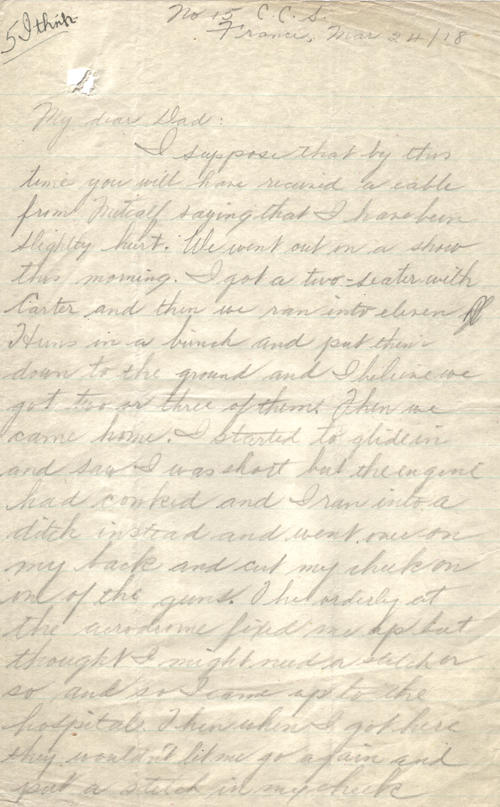 5 I think
No 15 C. C. S.
France, Mar 24/18
My dear Dad:
I suppose that by this
time you will have received a cable
from Metcalf saying that I have been
slightly hurt. We went out on a show
this morning. I got a two-seater with
Carter and then we ran into eleven
Huns in a bunch and put them
down to the ground and I believe we
got two or three of them. Then we
came home. I started to glide in
and saw I was short but the engine
had conked and I ran into a
ditch instead and went over on
my back and cut my cheek on
one of the guns. The orderly at
the aerodrome fixed me up but
thought I might need a stitch or
so and so I came up to the
hospital. Then when I got here
they wouldn't let me go again and
put a stitch in my cheek